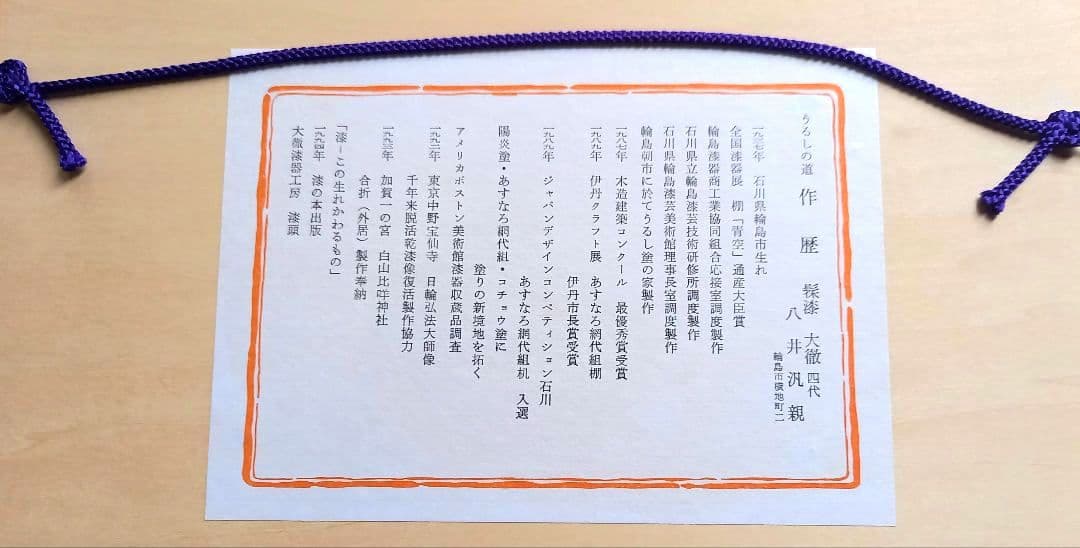 うるしの道
作歴
髹漆 大徹 四代
八井汎親
輪島市横地町二
一九三七年 石川県輪島市生れ
全国漆器展 棚「青空」通産大臣賞
輪島漆器商工業協同組合応接室調度製作
石川県立輪島漆芸技術研修所調度製作
石川県輪島漆芸美術館理事長室調度製作
輪島朝市に於てうるし塗の家製作
一九八七年 木造建築コンクール 最優秀賞受賞
一九八九年 伊丹クラフト展 あすなろ網代組棚
伊丹市長賞受賞
ジャパンデザインコンペティション石川
あすなろ網代組机 入選
陽炎塗・あすなろ網代組・コチョウ塗に
塗りの新境地を拓く
アメリカボストン美術館漆器収蔵品調査
一九九二年 東京中野宝仙寺 日輪弘法大師像
千年来脱活乾漆像復活製作協力
一九九三年 加賀一の宮 白山比咩神社
合折(外居)製作奉納
「漆－この生れかわるもの」
一九九四年 漆の本出版
大徹漆器工房 漆頭